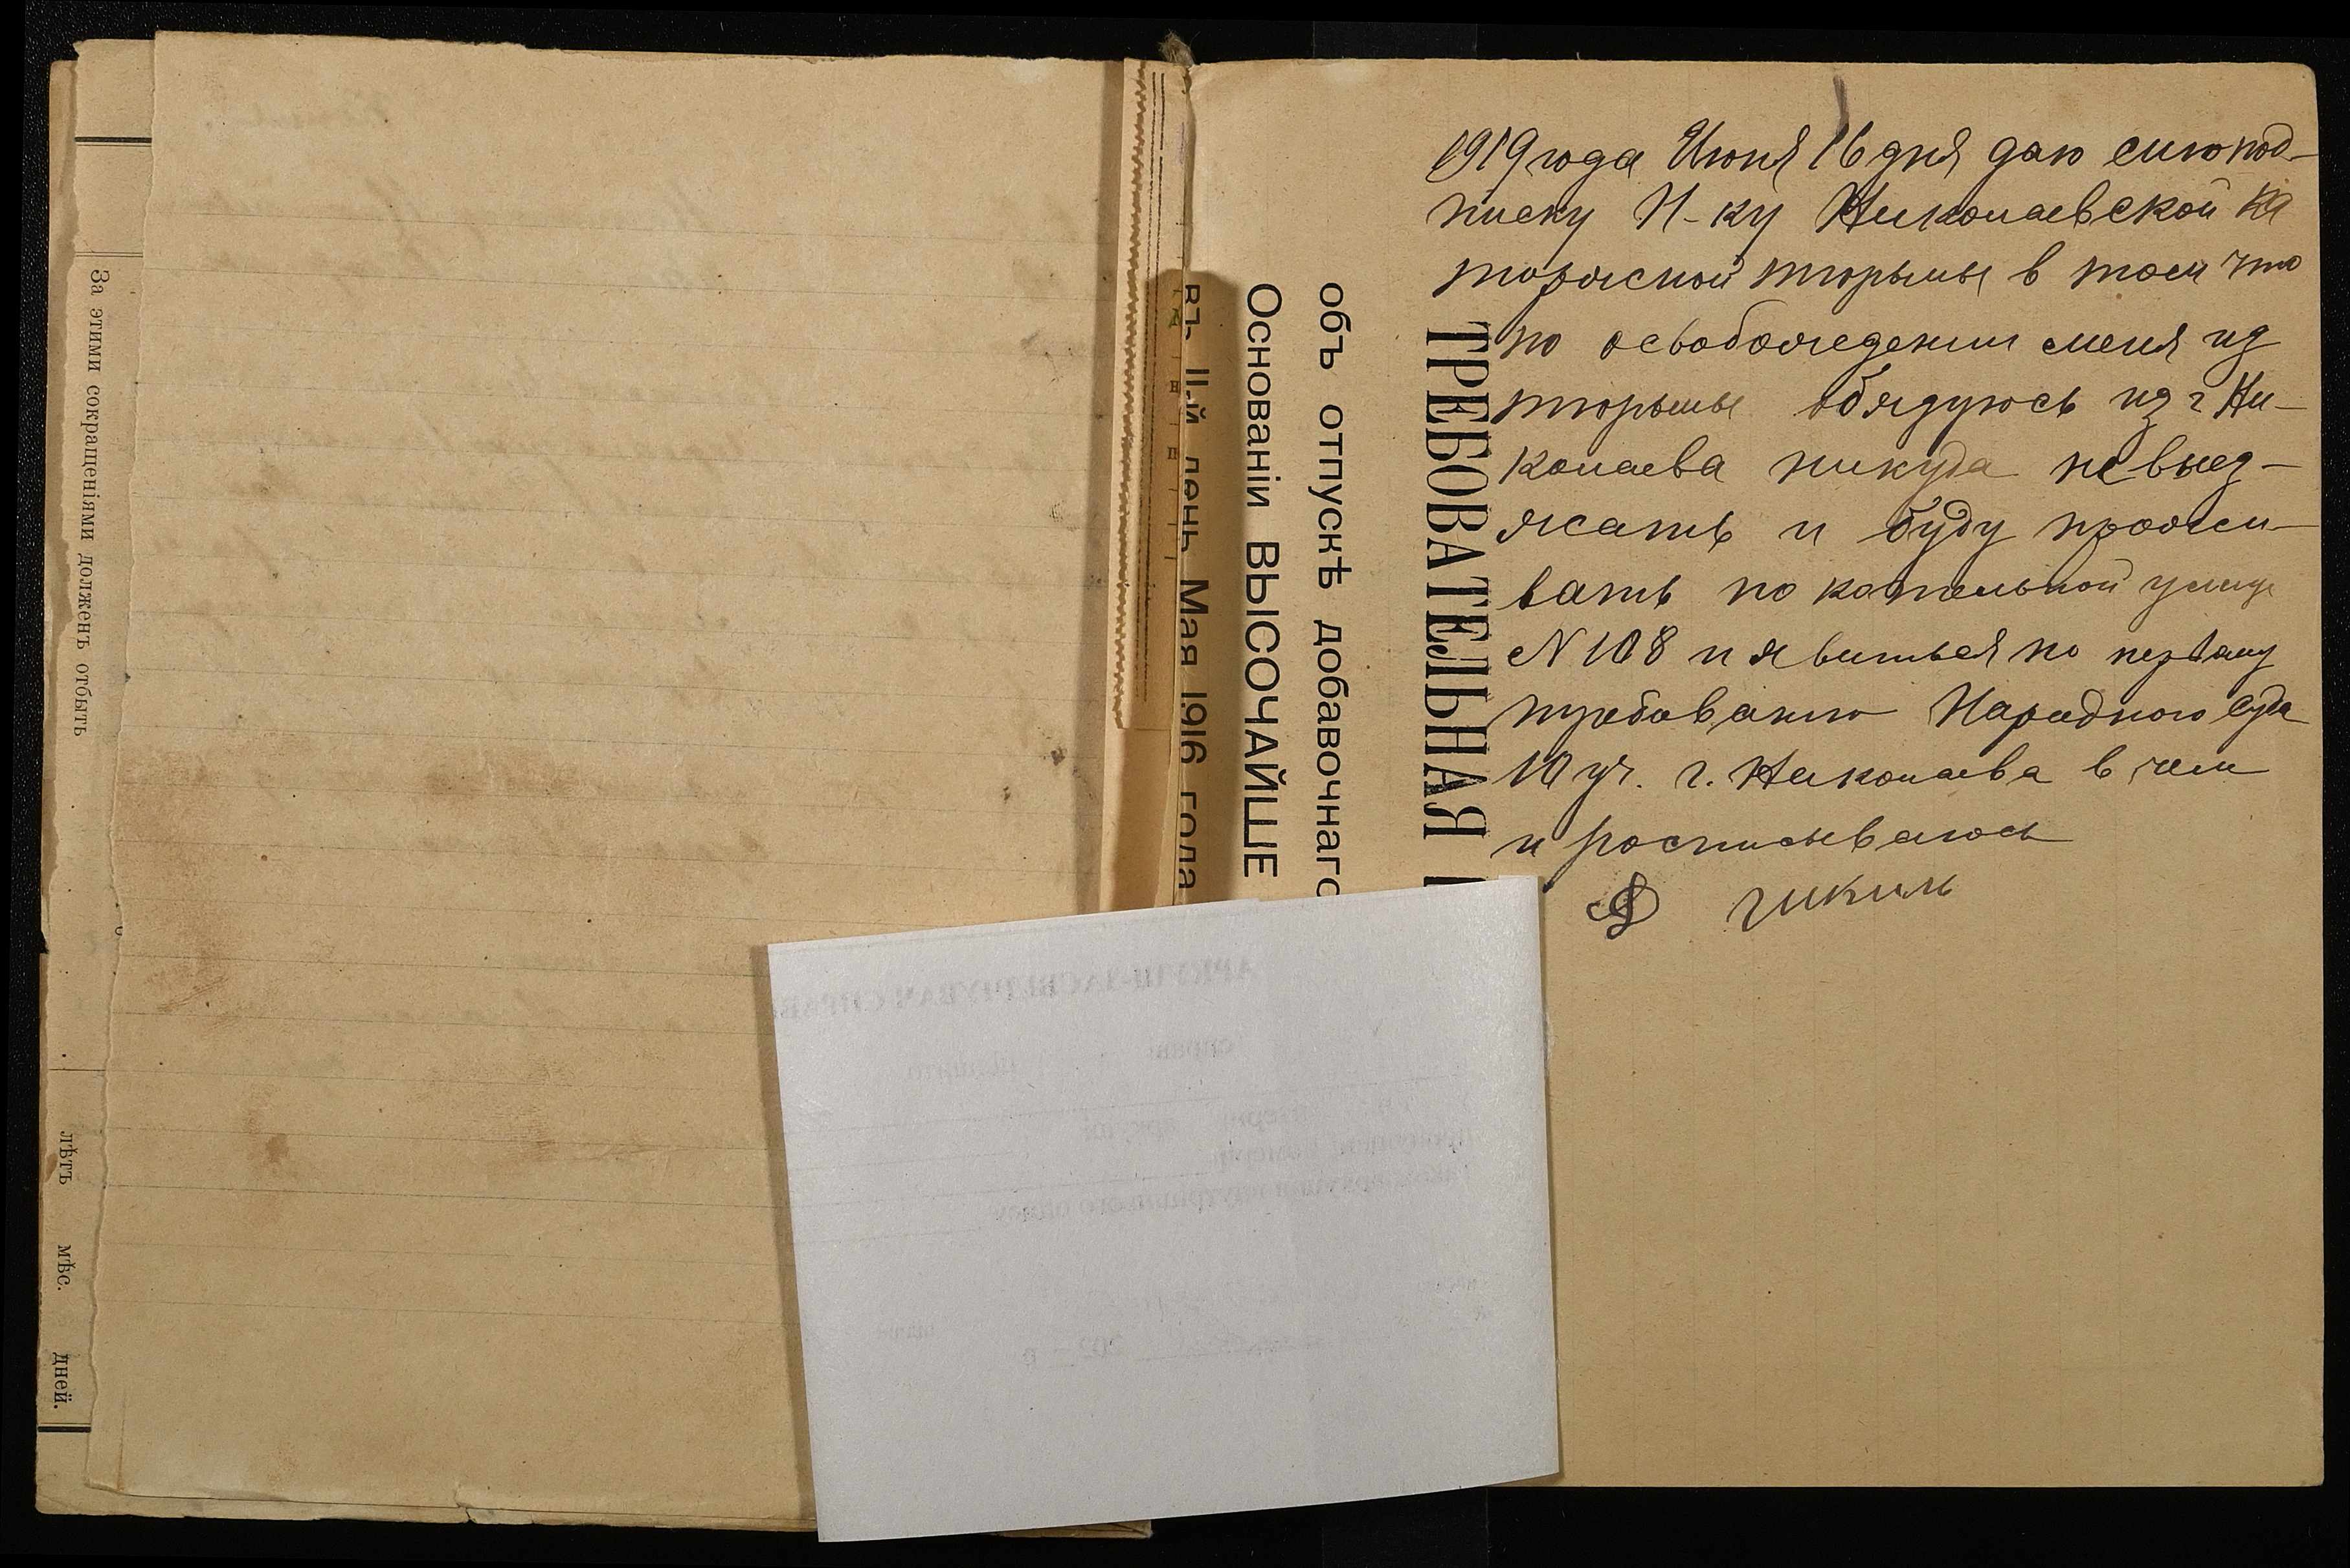 За этими сокращеніями долженъ отбыть
лѣтъ мѣс. дней.
въ II-й день Мая 1916 года
Основаніи ВЫСОЧАЙШЕ
объ отпускѣ добавочнаго
ТРЕБОВАТЕЛЬНАЯ
1919 года Июня 16 дня даю сию под-
писку Н-ку Николаевской Ка
торжной тюрьмы в том что
по освобождении меня из
тюрьмы обязуюсь из г Ни-
колаева никуда не выез-
жать и буду прожи-
вать по котельной улице
N 108 и явиться по первому
требованию Народного Суда
10 уч. г. Николаева в чем
и росписываюсь